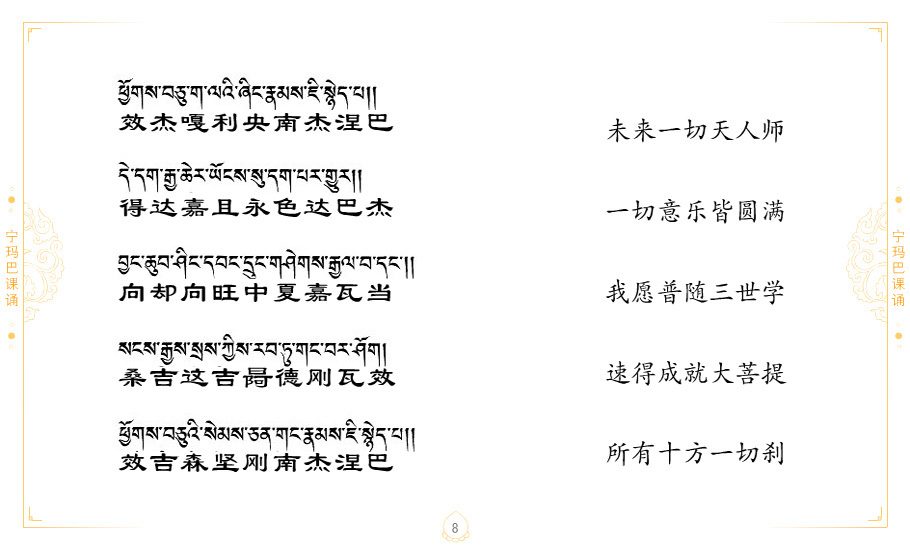 ཕྱོགས་བཅུ་ག་ལའི་ཞིང་རྣམས་ཇི་སྙེད་པ།།
效杰嘎利央南杰涅巴
དེ་དག་རྒྱ་ཆེར་ཡོངས་སུ་དག་པར་གྱུར།།
得达嘉且永色达巴杰
བྱང་ཆུབ་ཤིང་དབང་དྲུང་གཤེགས་རྒྱལ་བ་དང་།།
向却向旺中夏嘉瓦当
སངས་རྒྱས་སྲས་ཀྱིས་རབ་ཏུ་གང་བར་ཤོག།
桑吉这吉冔德刚瓦效
ཕྱོགས་བཅུའི་སེམས་ཅན་གང་རྣམས་ཇི་སྙེད་པ།།
效吉森坚刚南杰涅巴
未来一切天人师
一切意乐皆圆满
我愿普随三世学
速得成就大菩提
所有十方一切刹
宁玛巴课诵
宁玛巴课诵
8